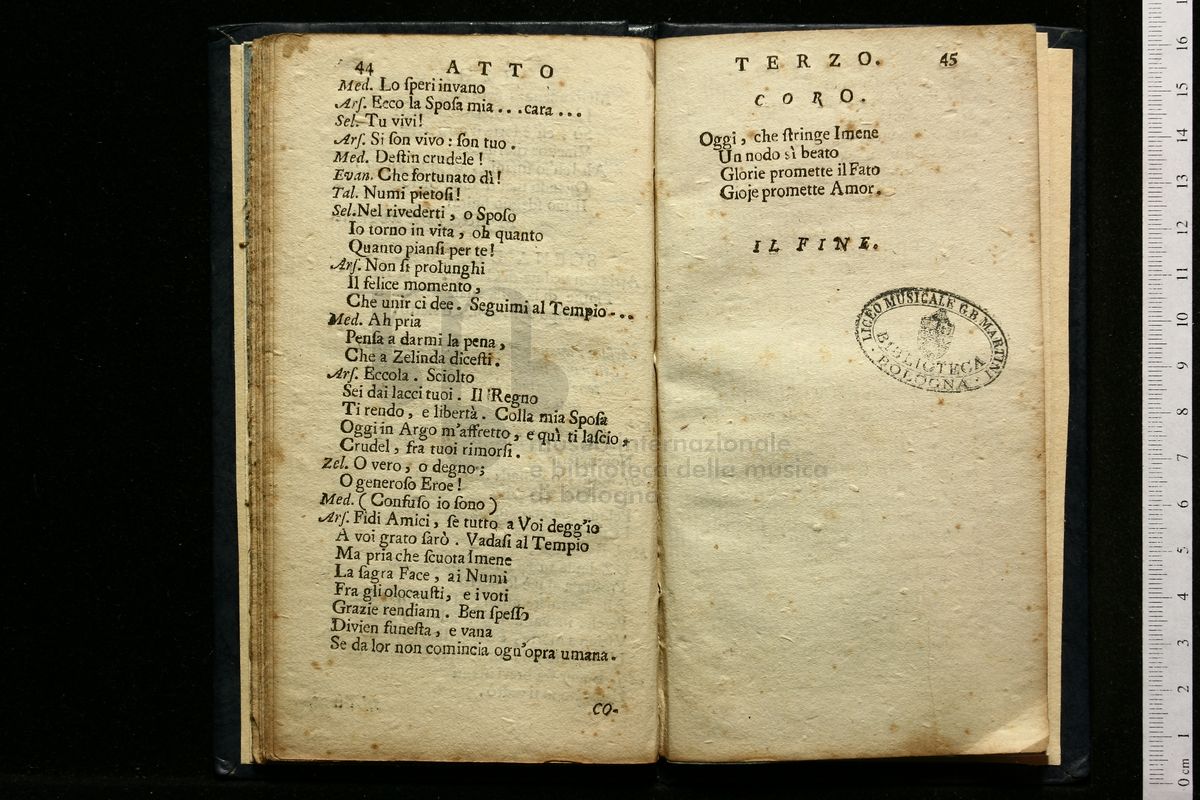 44 ATTO
Med. Lo ſperi invano
Arſ. Ecco la Spoſa mia . . . cara . . .
Sel. Tu vivi!
Arſ. Si ſon vivo : ſon tuo .
Med. Deſtin crudele !
Evan. Che fortunato dì !
Tal. Numi pietoſi !
Sel. Nel rivederti , o Spoſo
Io torno in vita , oh quanto
Quanto pianſi per te !
Arſ. Non ſi prolunghi
Il felice momento ,
Che unir ci dee . Seguimi al Tempio . . .
Med. Ah pria
Penſa a darmi la pena ,
Che a Zelinda diceſti .
Arſ. Eccola . Sciolto
Sei dai lacci tuoi . Il Regno
Ti rendo , e libertà . Colla mia Spoſa
Oggi in Argo m'affretto , e quì ti laſcio ,
Crudel , fra tuoi rimorſi .
Zel. O vero , o degno ;
O generoſo Eroe !
Med. ( Confuſo io ſono )
Arſ. Fidi Amici , ſe tutto a Voi degg'io
A voi grato ſarò . Vadaſi al Tempio
Ma pria che ſcuota Imene
La ſagra Face , ai Numi
Fra gli olocauſti , e i voti
Grazie rendiam . Ben ſpeſſo
Divien funeſta , e vana
Se da lor non comincia ogn'opra umana .
CO-
TERZO. 45
CORO.
Oggi , che ſtringe Imene
Un nodo sì beato
Glorie promette il Fato
Gioje promette Amor .
IL FINE.
LICEO MUSICALE G.B MARTINI
BIBLIOTECA
· BOLOGNA ·
museo internazionale
e biblioteca della musica
di bologna
16
15
14
13
12
11
10
9
8
7
6
5
4
3
2
1
0 cm